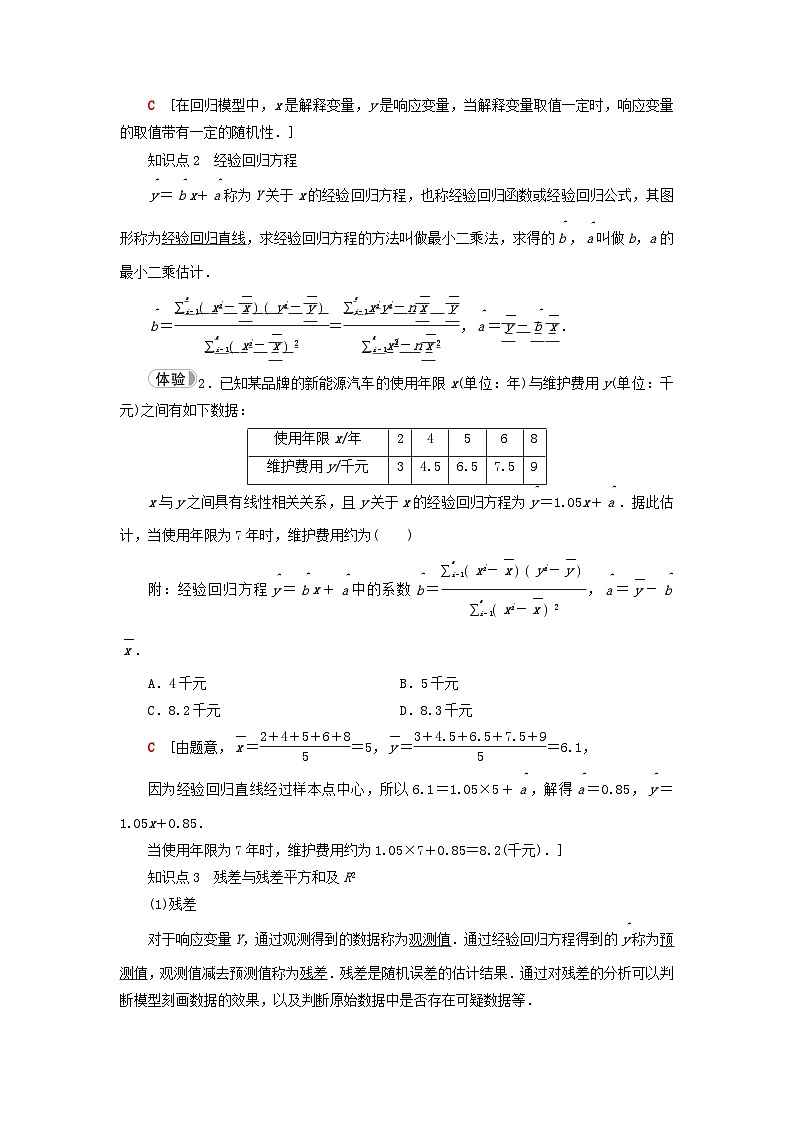 C [在回归模型中，x是解释变量，y是响应变量，当解释变量取值一定时，响应变量
的取值带有一定的随机性．]
知识点2 经验回归方程
ŷ＝b̂x＋â称为Y关于x的经验回归方程，也称经验回归函数或经验回归公式，其图
形称为经验回归直线，求经验回归方程的方法叫做最小二乘法，求得的b̂，â叫做b，a的
最小二乘估计．
b̂＝∑ⁿᵢ₌₁(xᵢ－x̅)(yᵢ－y̅)/∑ⁿᵢ₌₁(xᵢ－x̅)²＝∑ⁿᵢ₌₁xᵢyᵢ－nx̅ y̅/∑ⁿᵢ₌₁xᵢ²－nx̅²，â＝y̅－b̂x̅．
体验 2．已知某品牌的新能源汽车的使用年限x(单位：年)与维护费用y(单位：千
元)之间有如下数据：
使用年限x/年 2 4 5 6 8
维护费用y/千元 3 4.5 6.5 7.5 9
x与y之间具有线性相关关系，且y关于x的经验回归方程为ŷ＝1.05x＋â．据此估
计，当使用年限为7年时，维护费用约为( )
附：经验回归方程ŷ＝b̂x＋â中的系数b̂＝∑ⁿᵢ₌₁(xᵢ－x̅)(yᵢ－y̅)/∑ⁿᵢ₌₁(xᵢ－x̅)²，â＝y̅－b̂
x̅．
A．4千元 B．5千元
C．8.2千元 D．8.3千元
C [由题意，x̅＝2＋4＋5＋6＋8/5＝5，y̅＝3＋4.5＋6.5＋7.5＋9/5＝6.1，
因为经验回归直线经过样本点中心，所以6.1＝1.05×5＋â，解得â＝0.85，ŷ＝
1.05x＋0.85．
当使用年限为7年时，维护费用约为1.05×7＋0.85＝8.2(千元)．]
知识点3 残差与残差平方和及R²
(1)残差
对于响应变量Y，通过观测得到的数据称为观测值．通过经验回归方程得到的ŷ称为预
测值，观测值减去预测值称为残差．残差是随机误差的估计结果．通过对残差的分析可以判
断模型刻画数据的效果，以及判断原始数据中是否存在可疑数据等．